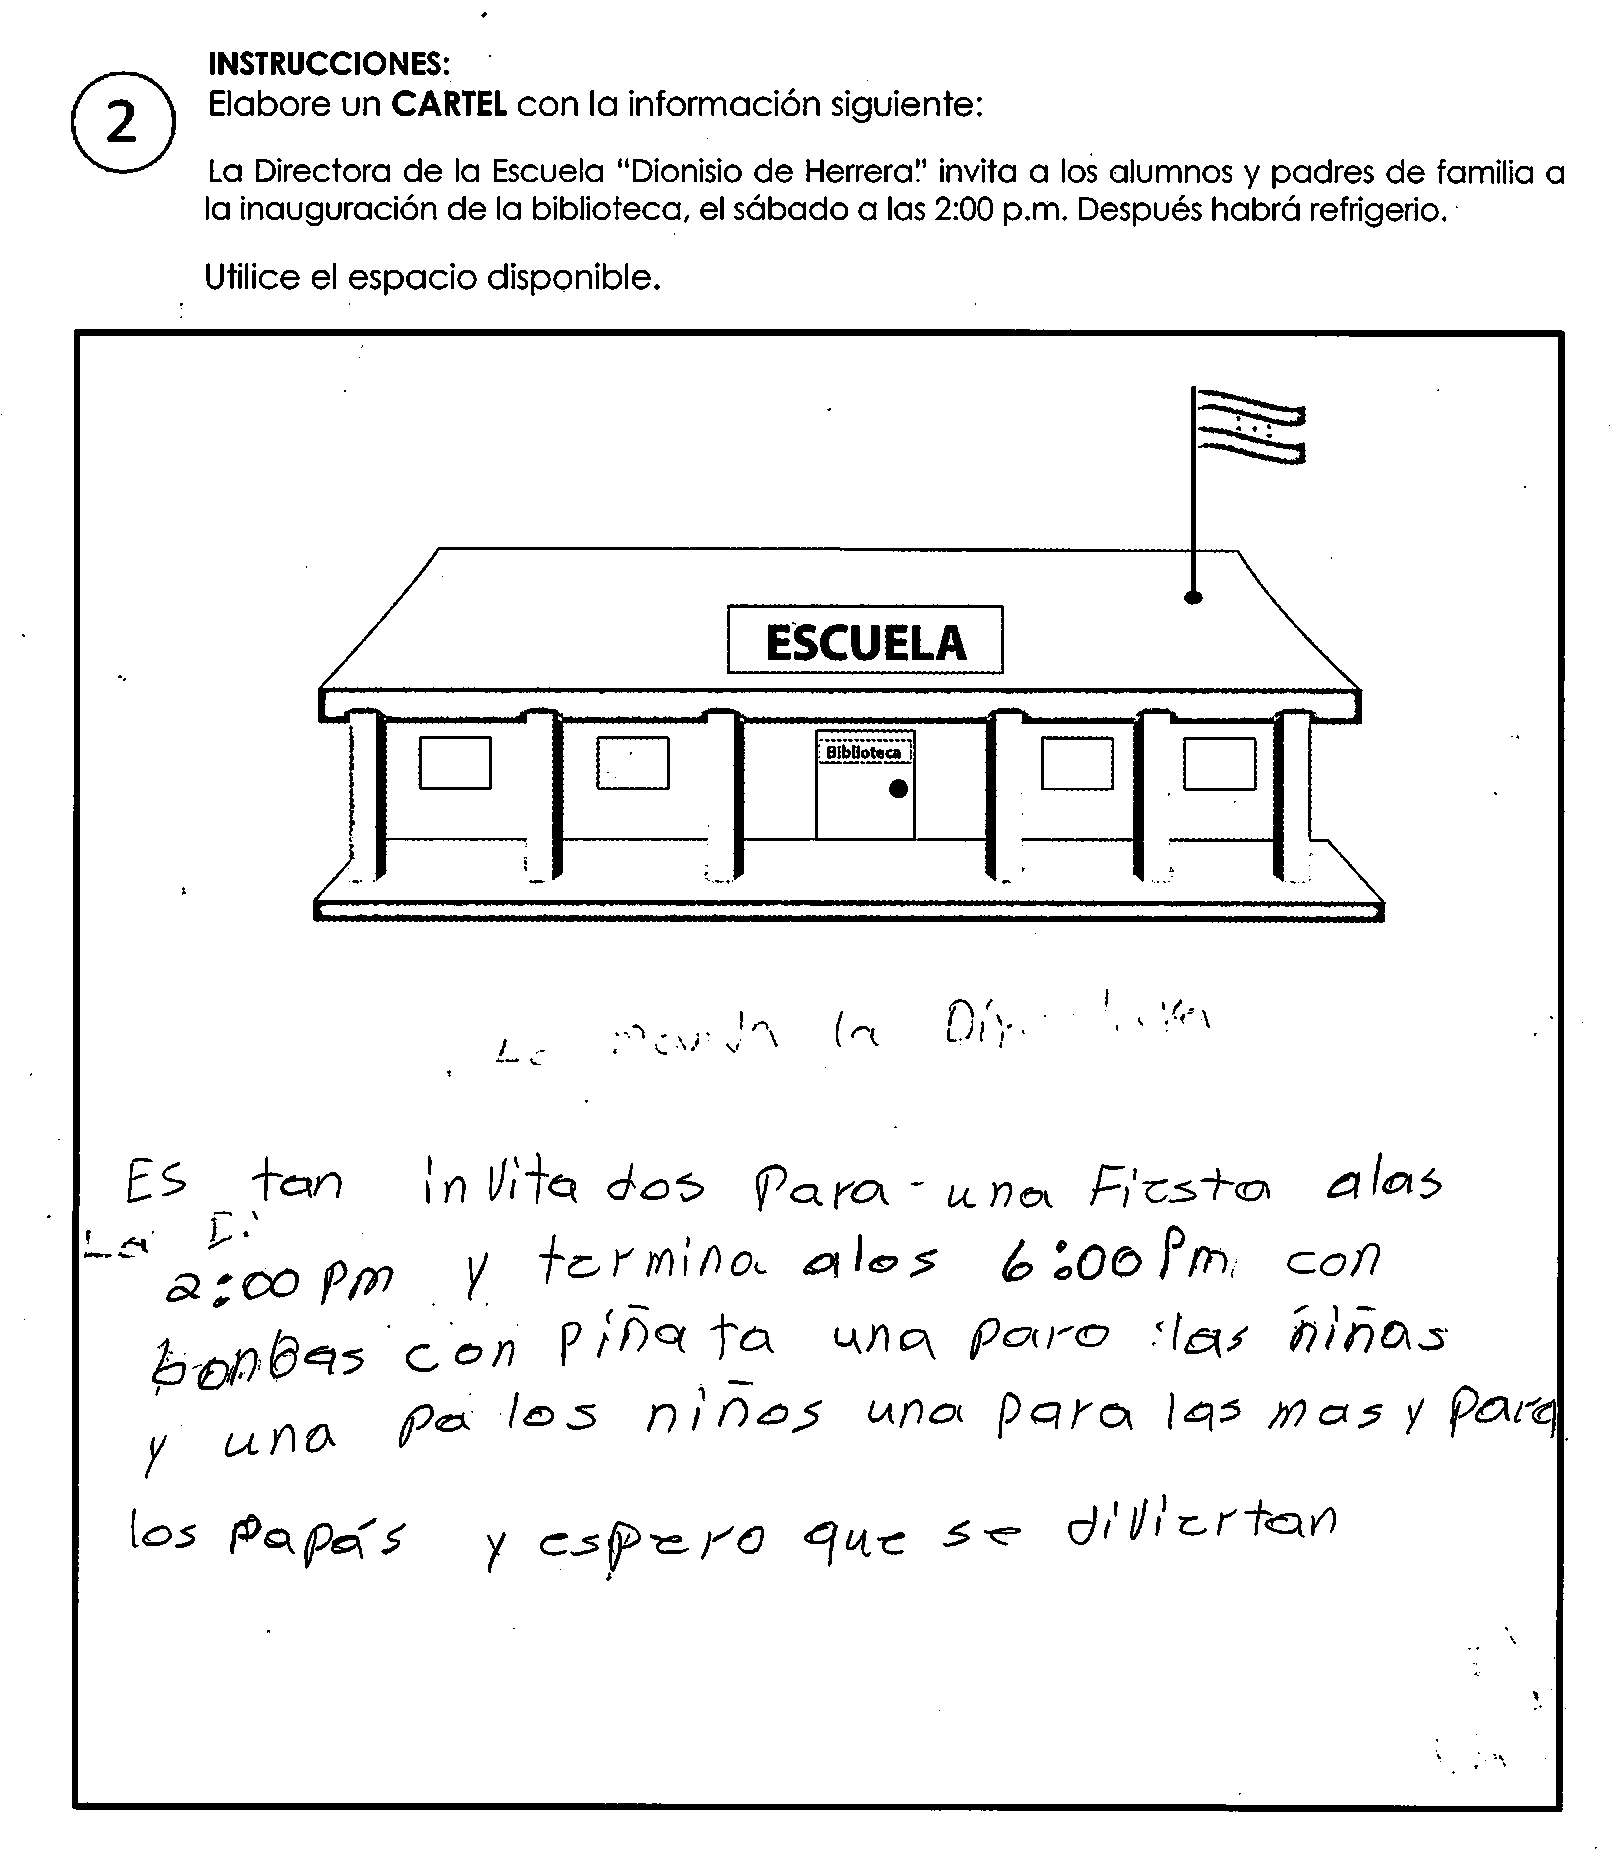 INSTRUCCIONES:
2
Elabore un CARTEL con la información siguiente:
La Directora de la Escuela "Dionisio de Herrera" invita a los alumnos y padres de familia a
la inauguración de la biblioteca, el sábado a las 2:00 p.m. Después habrá refrigerio.
Utilice el espacio disponible.
ESCUELA
Biblioteca
la
ES tan invita dos Para una Fiesta alas
2:00 pm y termina alos 6:00 Pm con
bonbas con piñata una paro las niñas
y una pa los niños una para las mas y para
los papás y espero que se diviertan